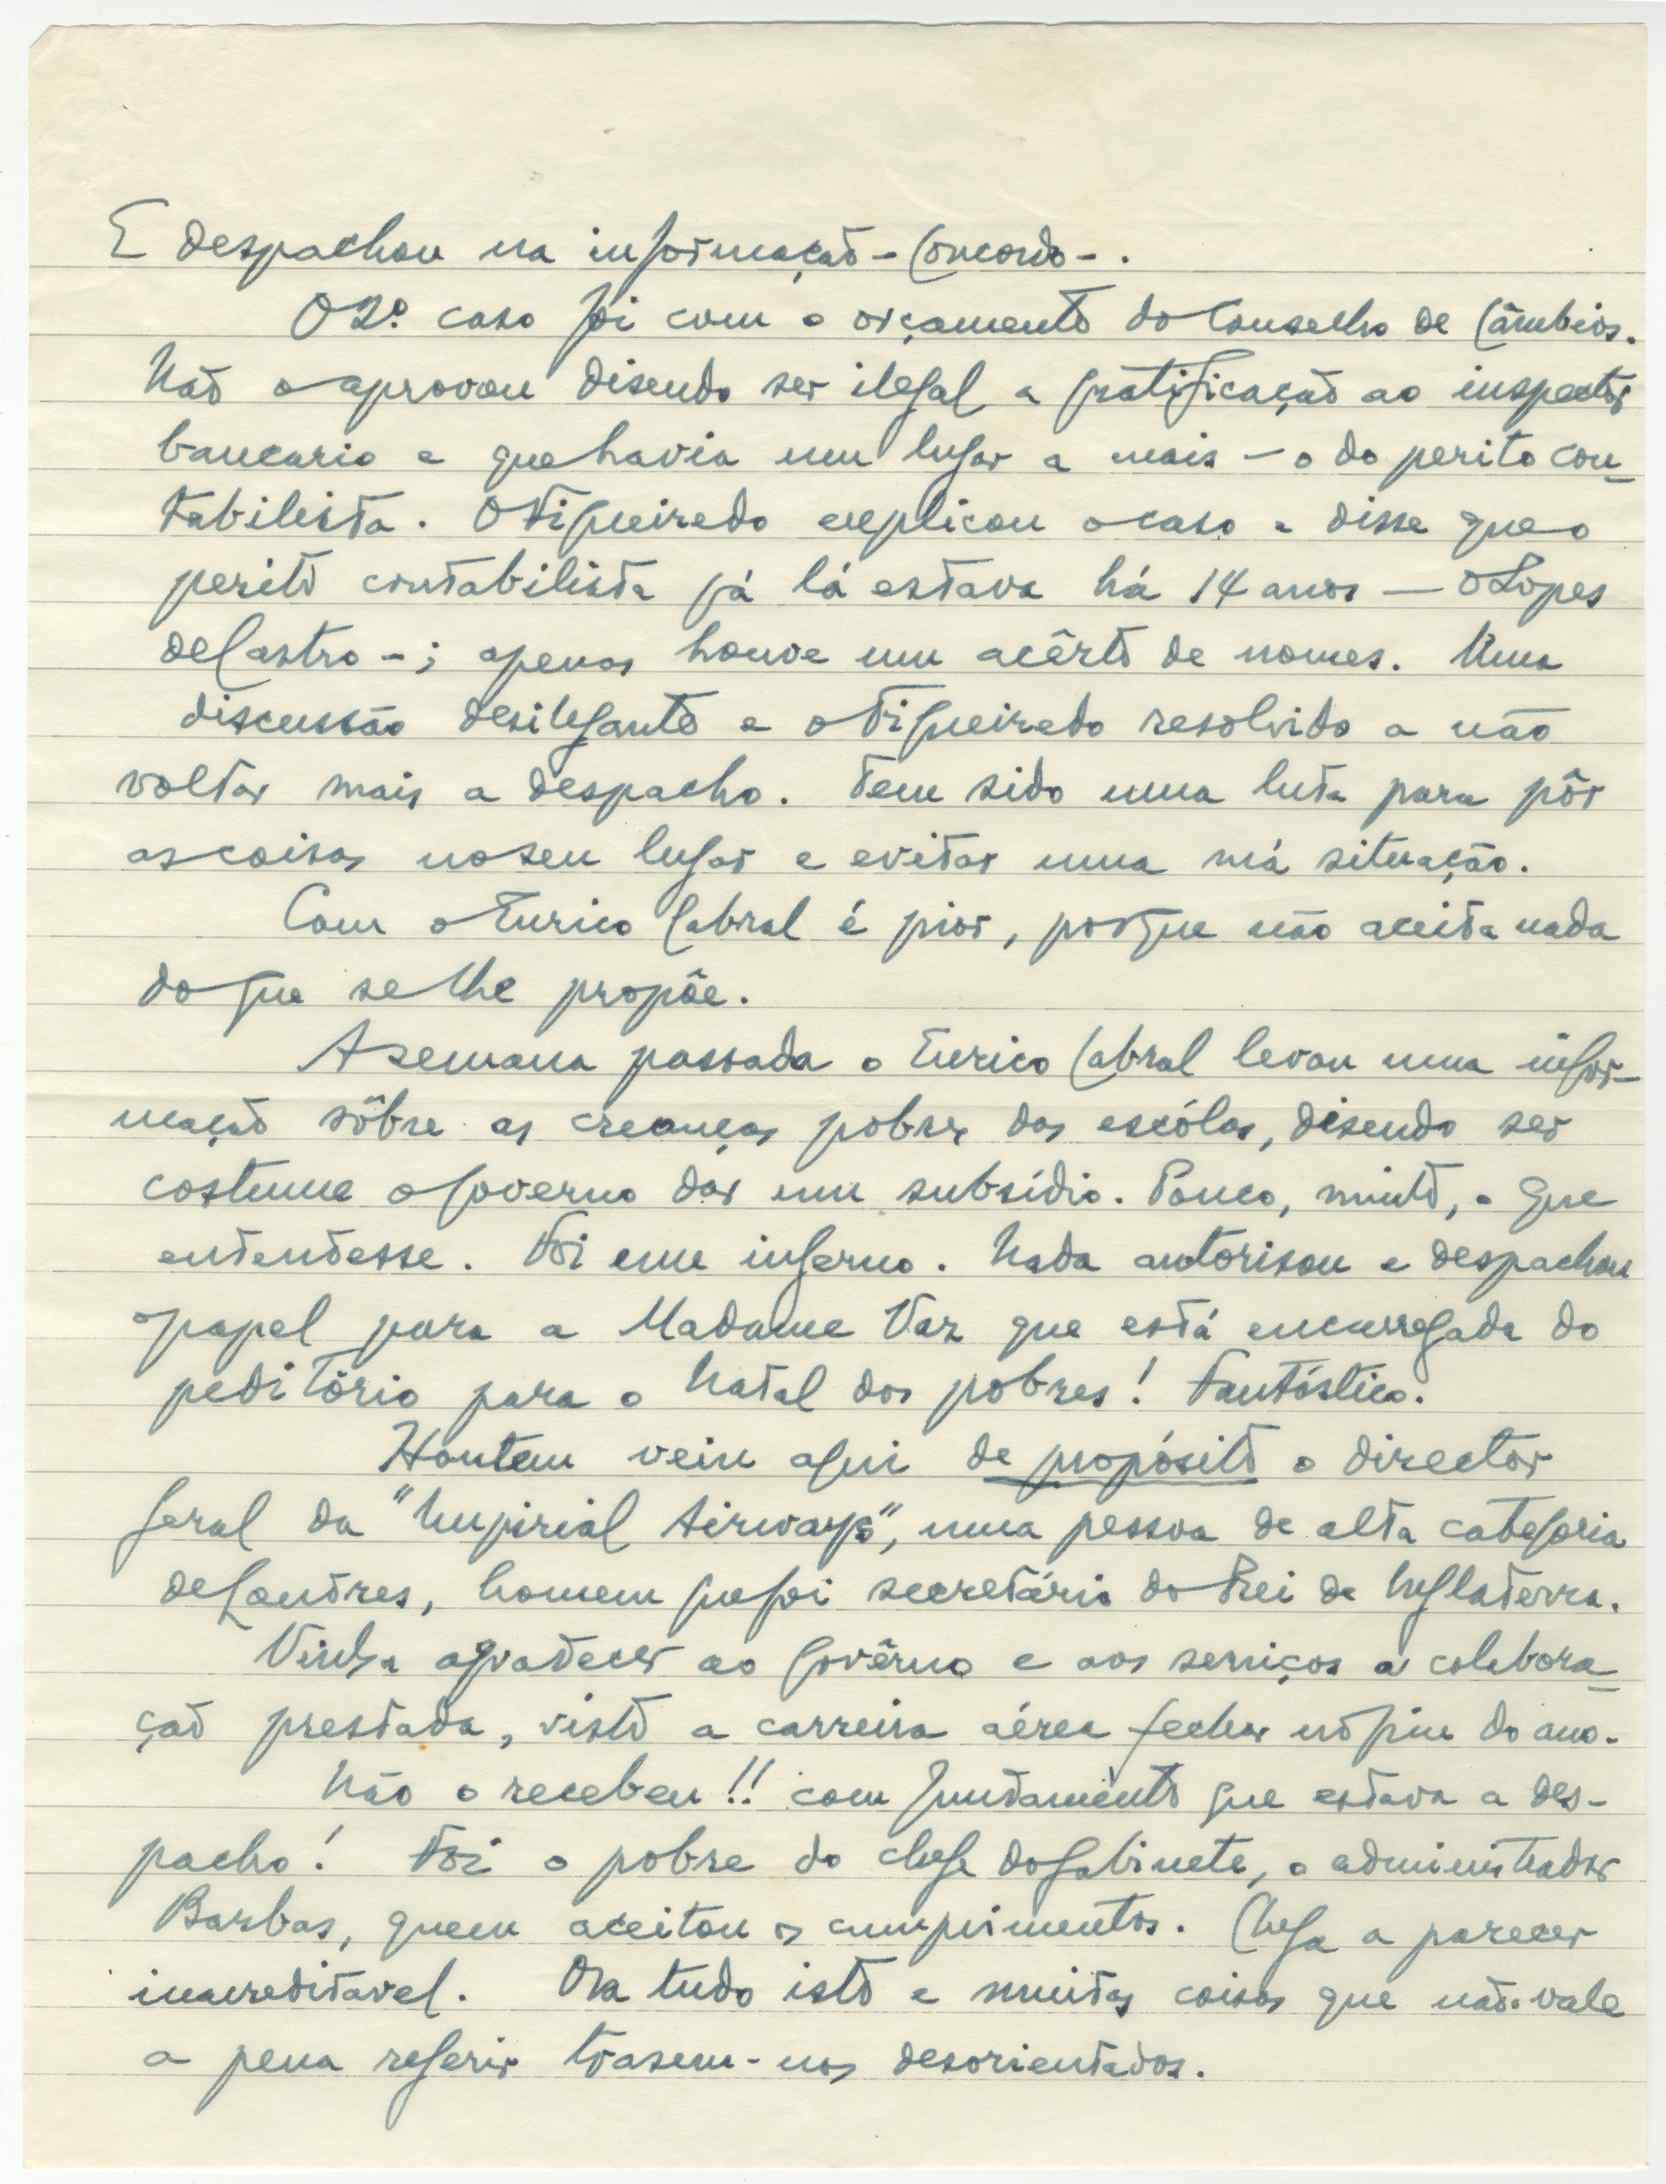 E despachou na informação - Concordo - .
O 2º. caso foi com o orçamento do Conselho de Câmbios.
Não o aprovou disendo ser ilegal a gratificação ao inspector
bancario e que havia um lugar a mais - o do perito con-
tabilista. O Figueiredo explicou o caso e disse que o
perito contabilista já lá estava há 14 anos — O Lopes
de Castro - ; apenas houve um acêrto de nomes. Uma
discussão desilegante e o Figueiredo resolvido a não
voltar mais a despacho. Tem sido uma luta para pôr
as coisas no seu lugar e evitar uma má situação.
Com o Eurico Cabral é pior, porque não aceita nada
do que se lhe propõe.
A semana passada o Eurico Cabral levou uma infor-
mação sôbre as creanças pobres das escólas, disendo ser
costume o Governo dar um subsídio. Pouco, muito, o que
entendesse. Foi um inferno. Nada autorisou e despachou
o papel para a Madame Vaz que está encarregada do
peditório para o Natal dos pobres! Fantástico.
Hontem veiu aqui de propósito o director
geral da "Impirial Airways", uma pessoa de alta categoria
de Londres, homem que foi secretário do Rei de Inglaterra.
Vinha agradecer ao Govêrno e aos serviços a colabora-
ção prestada, visto a carreira aérea fechar no fim do ano.
Não o recebeu!! com fundamento que estava a des-
pacho! Foi o pobre do chefe do gabinete, o administrador
Barbas, quem aceitou os cumprimentos. Chega a parecer
inacreditavel. Ora tudo isto e muitas coisas que não vale
a pena referir trasem-nos desorientados.